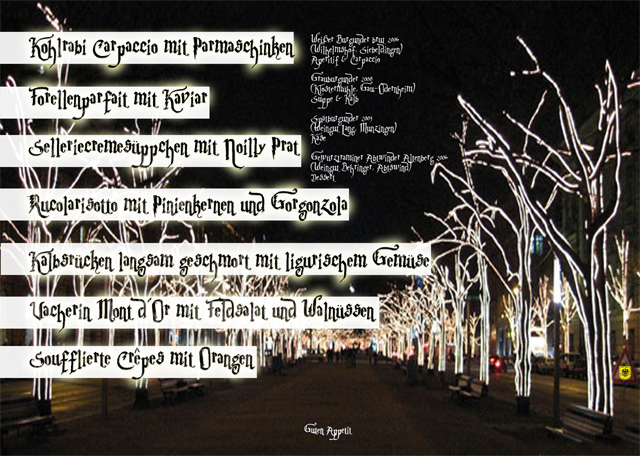 Kohlrabi Carpaccio mit Parmaschinken
Forellenparfait mit Kaviar
Selleriecremesüppchen mit Noilly Prat
Rucolarisotto mit Pinienkernen und Gorgonzola
Kalbsrücken langsam geschmort mit ligurischem Gemüse
Vacherin Mont d'Or mit Feldsalat und Walnüssen
Soufflierte Crêpes mit Orangen
Weißer Burgunder brut 2006
(Wilhelmshof, Siebeldingen)
Aperitif & Carpaccio
Grauburgunder 2008
(Klostermühle, Gau-Odernheim)
Suppe & Kalb
Spätburgunder
(Weingut Lang, Munzingen)
Käse
Gewürztraminer Abtswinder Altenberg 2006
(Weingut Behringer, Abtswind)
Dessert
Guten Appetit